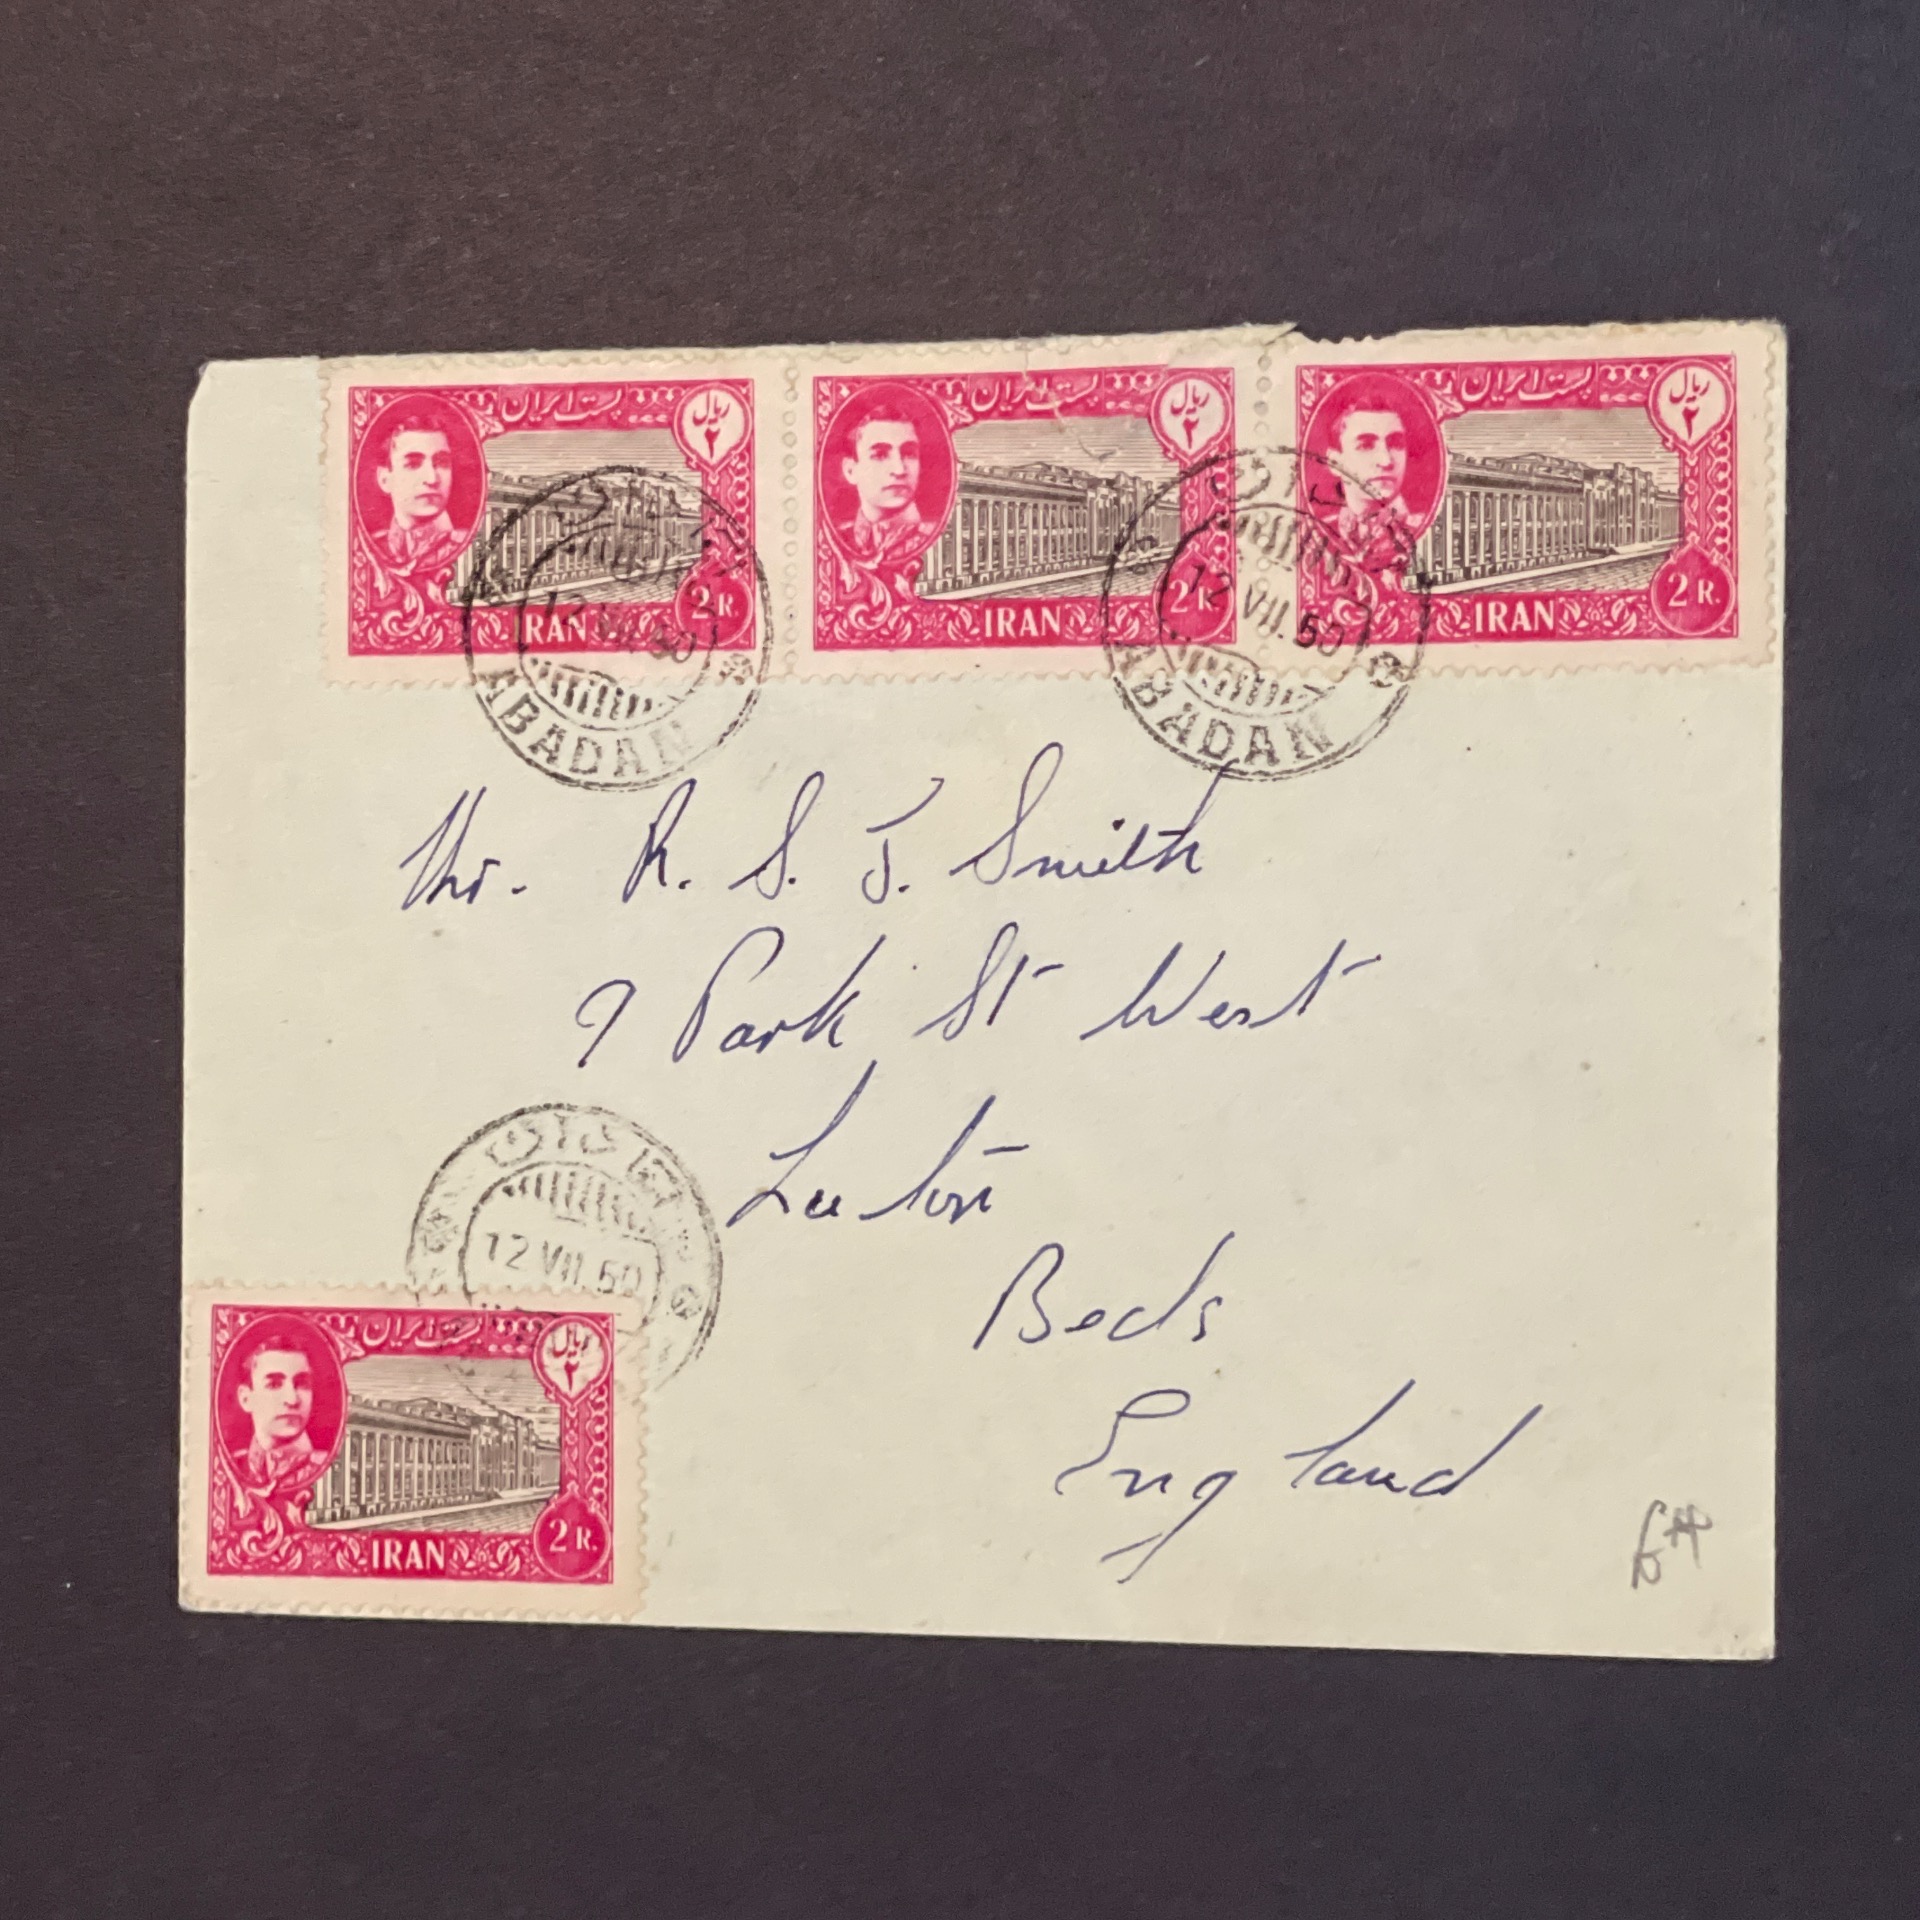 پست ایران
ریال
۲
IRAN
2 R.
پست ایران
ریال
۲
IRAN
2 R.
پست ایران
ریال
۲
IRAN
2 R.
آبادان
12 VII. 50
ABADAN
آبادان
12 VII. 50
ABADAN
Mr. R. S. J. Smith
9 Park St West
Luton
Beds
England
آبادان
12 VII. 50
پست ایران
ریال
۲
IRAN
2 R.